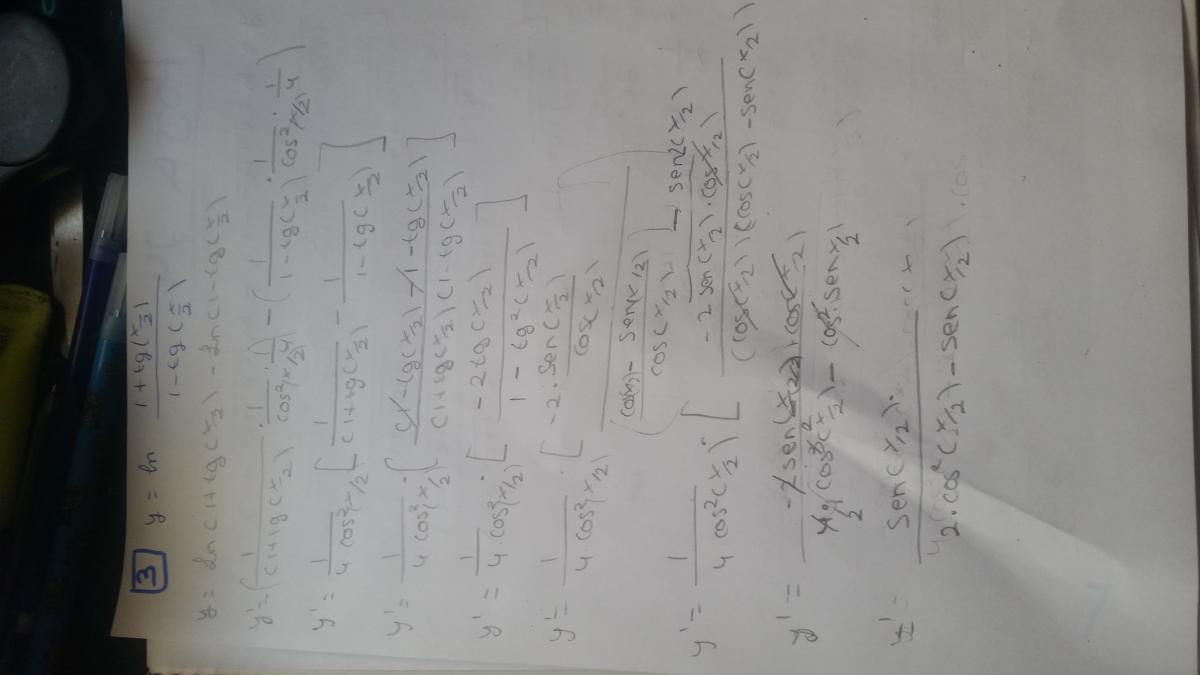 3 y = ln (1 + tg(x/2)) / (1 - tg(x/2))
y = ln(1+tg(x/2)) - ln(1-tg(x/2))
y' = (1/(1+tg(x/2)) · 1/cos²(x/2) · 1/4) - (1/(1-tg(x/2)) · 1/cos²(x/2) · 1/4)
y' = 1/(4 cos²(x/2)) [1/(1+tg(x/2)) - 1/(1-tg(x/2))]
y' = 1/(4 cos²(x/2)) · [(1-tg(x/2) -1 -tg(x/2)) / ((1+tg(x/2))(1-tg(x/2)))]
y' = 1/(4 cos²(x/2)) · [-2tg(x/2) / (1 - tg²(x/2))]
y' = 1/(4 cos²(x/2)) · [(-2·sen(x/2) / cos(x/2)) / ((cos(x/2) - sen(x/2)) / cos(x/2))]
y' = 1/(4 cos²(x/2)) · [-2 sen(x/2) · cos(x/2) / (cos(x/2))(cos(x/2) - sen(x/2))]
y' = -2 sen(x/2) · cos(x/2) / (4 · cos²(x/2) - cos² · sen x/2)
y' = sen(x/2) / (2·cos²(x/2) - sen(x/2))